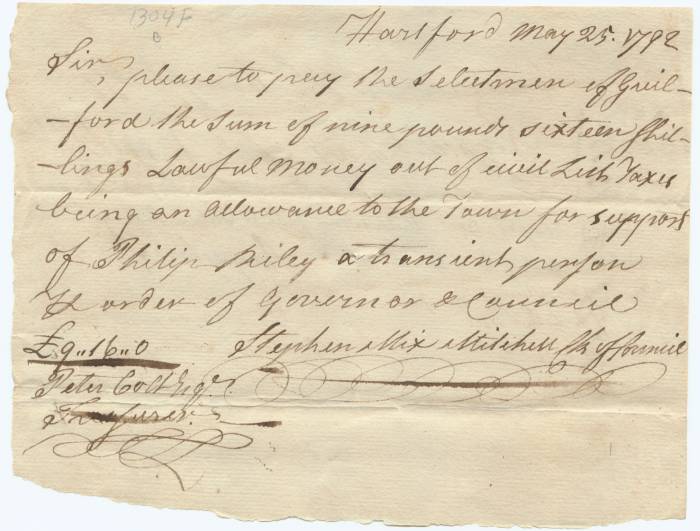 1304 F
B
Hartford May 25. 1792
Sir, please to pay the Selectmen of Guil-
-ford the Sum of nine pounds sixteen Shil-
-lings Lawful Money out of civil List Taxes
being an allowance to the Town for support
of Philip Riley a transient person
⅌ order of Governor & Council
£9"16"0 Stephen Mix Mitchell Clk of Council
Peter Colt Esqr.
Treasurer.